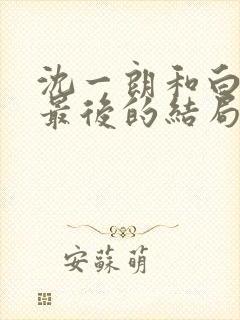 沈一朗和白
最後的結局
安蘇萌